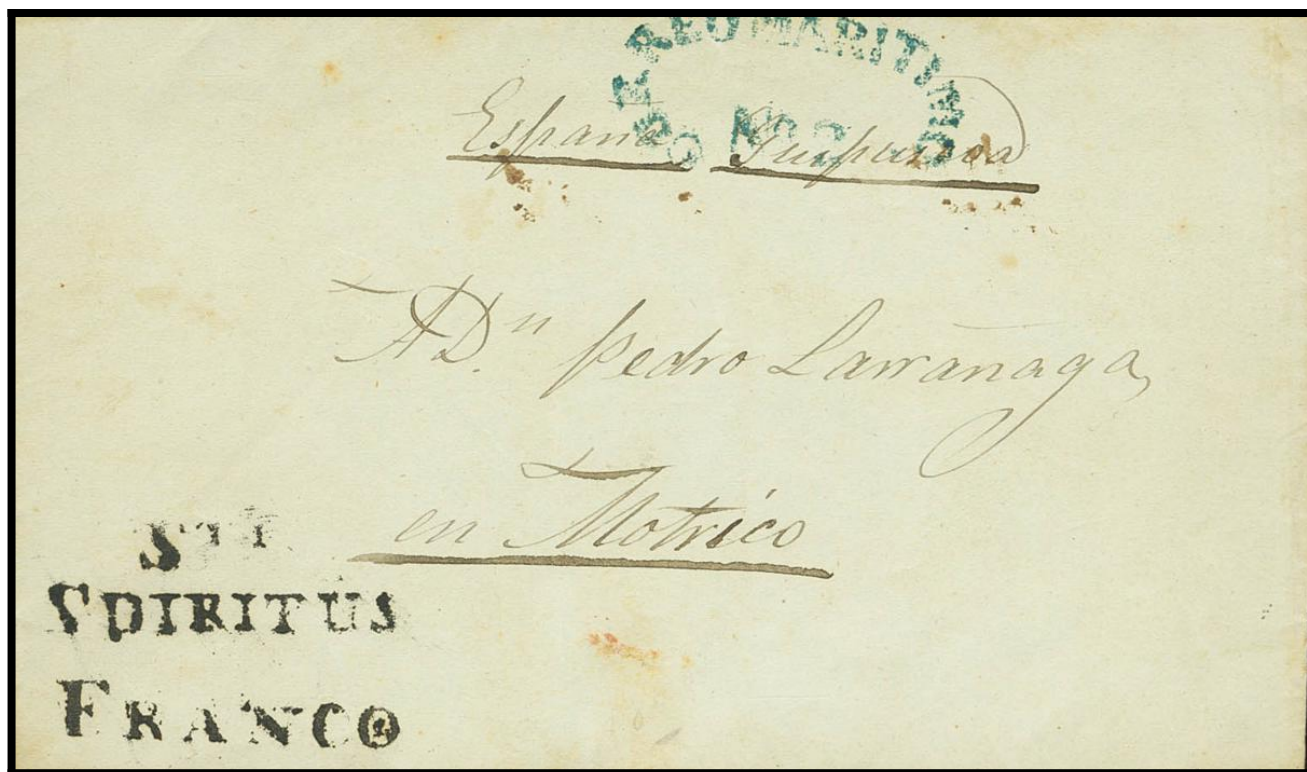 CORREO MARITIMO
Nº 2
España Guipuzcoa
A Dⁿ. Pedro Larrañaga,
en Motrico
Sᵀᴵ
SPIRITUS
FRANCO